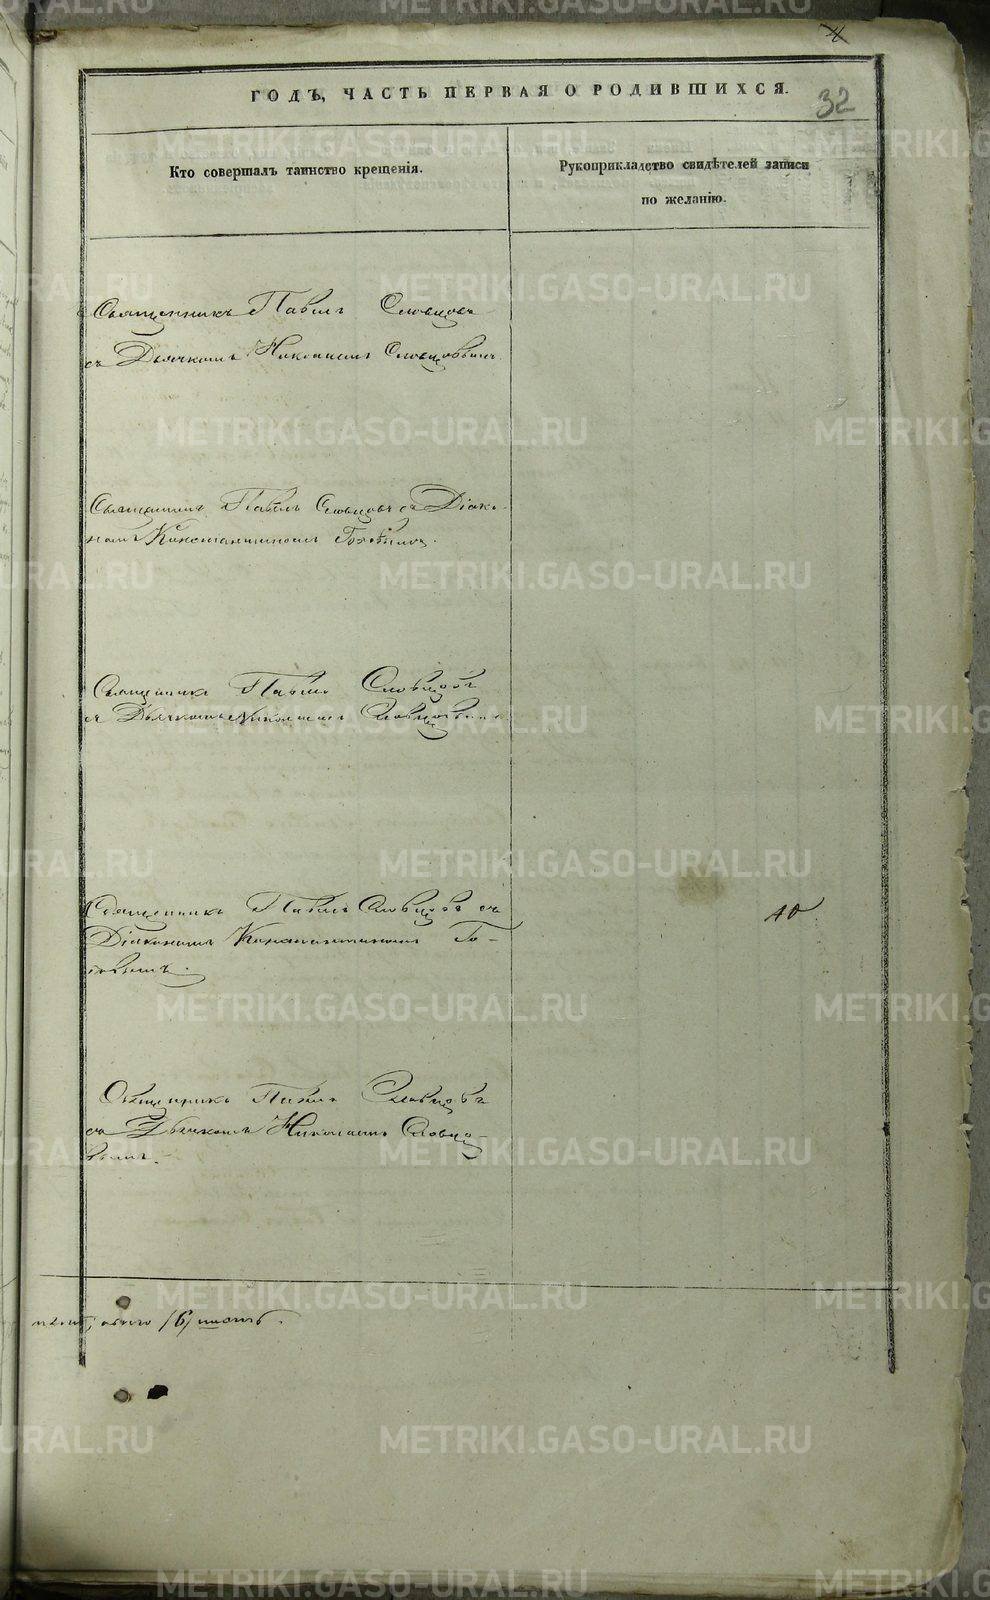 4
32
ГОДЪ, ЧАСТЬ ПЕРВАЯ О РОДИВШИХСЯ.
Кто совершалъ таинство крещенія.
Рукоприкладство свидѣтелей записи
по желанію.
Священникъ Павелъ Словцовъ
съ Дьячкомъ Николаемъ Словцовымъ.
Священникъ Павелъ Словцовъ съ Діако-
номъ Константиномъ
Священникъ Павелъ Словцовъ
съ Дьячкомъ Николаемъ Словцовымъ
Священникъ Павелъ Словцовъ съ
Діакономъ Константиномъ Го-
10
Священникъ Павелъ Словцовъ
съ Дьячкомъ Николаемъ Словцо-
вымъ.
всего /6/ шесть.
METRIKI.GASO-URAL.RU